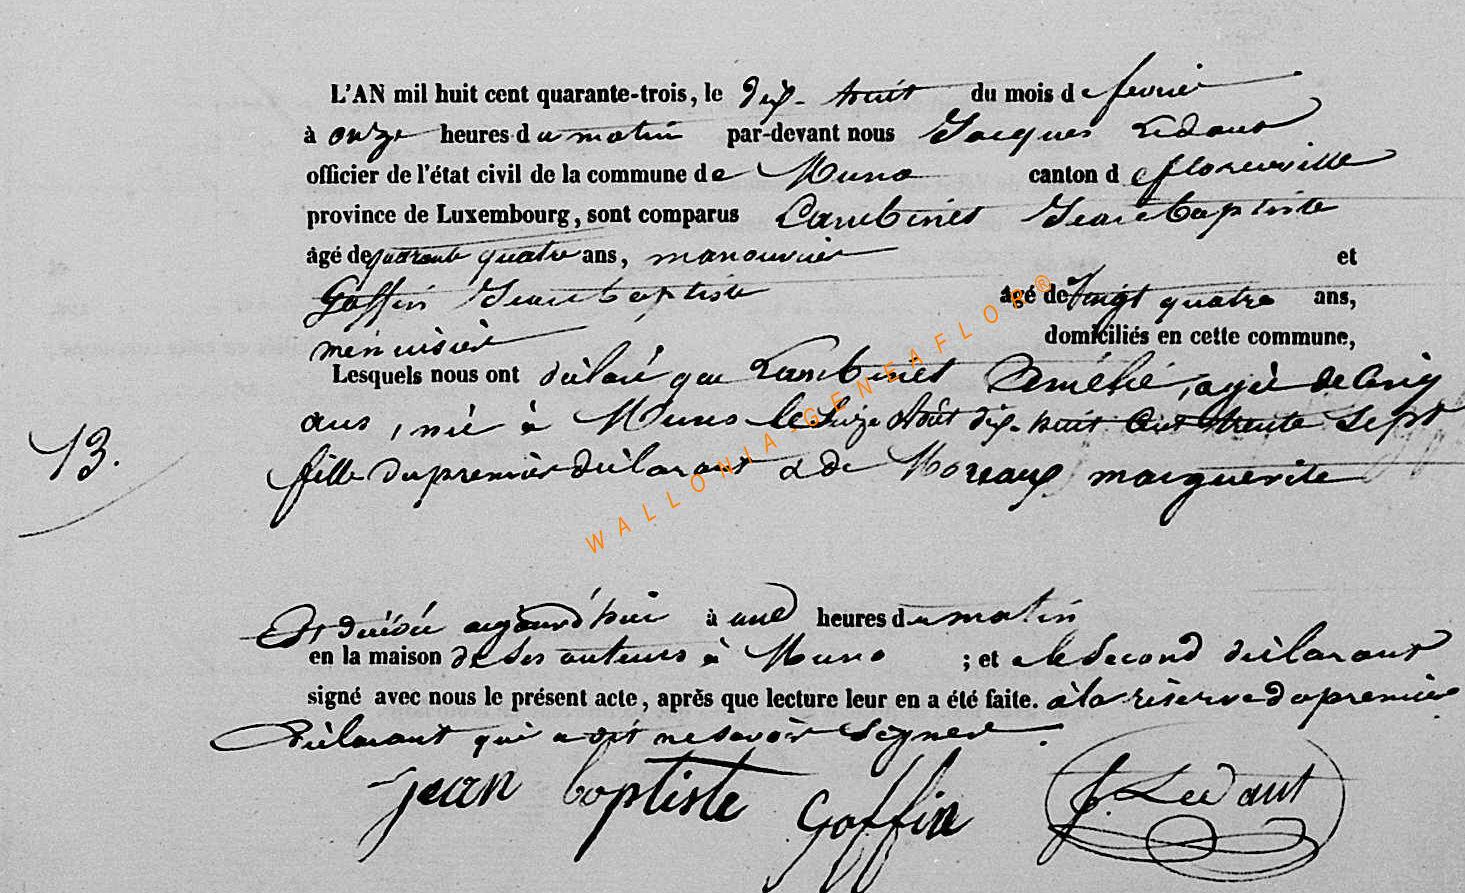 L'AN mil huit cent quarante-trois, le dix-huit du mois de fevrier
à onze heures du matin par-devant nous Jacques Ledant
officier de l'état civil de la commune de Muno canton de florenville
province de Luxembourg, sont comparus Lambinet Jean baptiste
agé de quarante quatre ans, manouvrier et
Goffin Jean baptiste agé de vingt quatre ans,
menuisier domiciliés en cette commune,
Lesquels nous ont déclaré que Lambinet Amélie, agée de cinq
ans, née à Muno le seize Août dix-huit cent trente sept
13. fille du premier déclarant & de Moreaux marguerite
Est décédée aujourd'hui à une heures du matin
en la maison de ses auteurs à Muno ; et le second déclarant
signé avec nous le présent acte, après que lecture leur en a été faite. à la réserve du premier
Déclarant qui a dit ne savoir signer.
jean baptiste goffin J. Ledant
WALLONIA-GENEAFLOR®